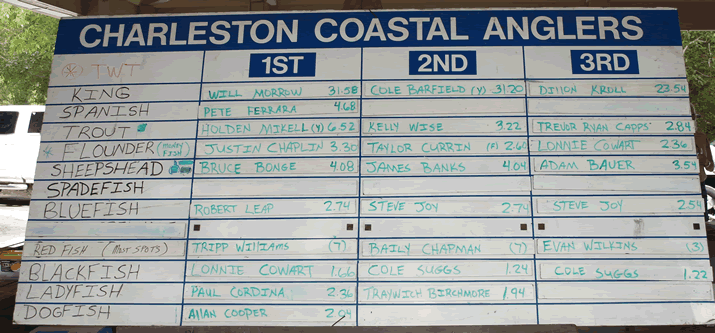 CHARLESTON COASTAL ANGLERS
TWT 1ST 2ND 3RD
KING WILL MORROW 31.58 COLE BARFIELD (Y) 31.20 DILLON KROLL 23.54
SPANISH PETE FERRARA 4.68
TROUT HOLDEN MIKELL (Y) 6.52 KELLY WISE 3.22 TREVOR RYAN CAPPS 2.84
FLOUNDER (MONEY FISH) JUSTIN CHAPLIN 3.30 TAYLOR CURRIN 2.60 LONNIE COWART 2.36
SHEEPSHEAD BRUCE BONGE 4.08 JAMES BANKS 4.04 ADAM BAUER 3.54
SPADEFISH
BLUEFISH ROBERT LEAP 2.74 STEVE JOY 2.74 STEVE JOY 2.54
RED FISH (MOST SPOTS) TRIPP WILLIAMS (7) BAILY CHAPMAN (7) EVAN WILKINS (3)
BLACKFISH LONNIE COWART 1.66 COLE SUGGS 1.24 COLE SUGGS 1.22
LADYFISH PAUL CORDINA 2.36 TRAYWICH BIRCHMORE 1.94
DOGFISH ALLAN COOPER 2.04